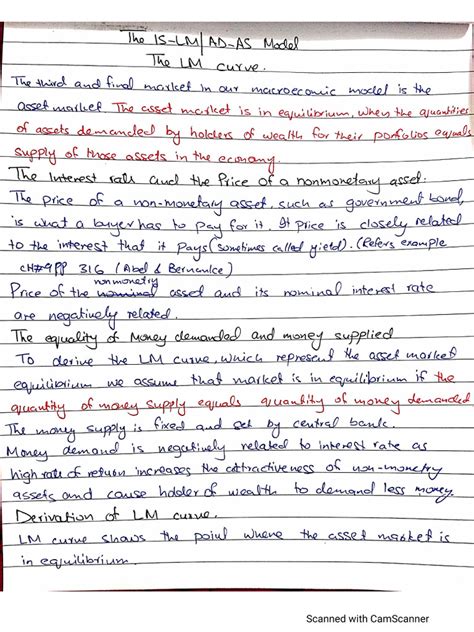 The IS-LM/AD-AS Model
The LM curve.
The third and final market in our macroeconomic model is the
asset market. The asset market is in equilibrium, when the quantities
of assets demanded by holders of wealth for their portfolios equals
supply of those assets in the economy.
The Interest rate and the Price of a nonmonetary asset.
The price of a non-monetary asset, such as government bond,
is what a buyer has to pay for it. It price is closely related
to the interest that it pays (sometimes called yield). (Refers example
CH#9 PP 316 (Abel & Bernanke)
nonmonetry
Price of the nominal asset and its nominal interest rate
are negatively related.
The equality of Money demanded and money supplied
To derive the LM curve, which represent the asset market
equilibrium we assume that market is in equilibrium if the
quantity of money supply equals quantity of money demanded
The money supply is fixed and set by central bank.
Money demand is negatively related to interest rate as
high rate of return increases the attractiveness of non-monetry
assets and cause holder of wealth to demand less money.
Derivation of LM curve.
LM curve shows the point where the asset market is
in equilibrium.
Scanned with CamScanner